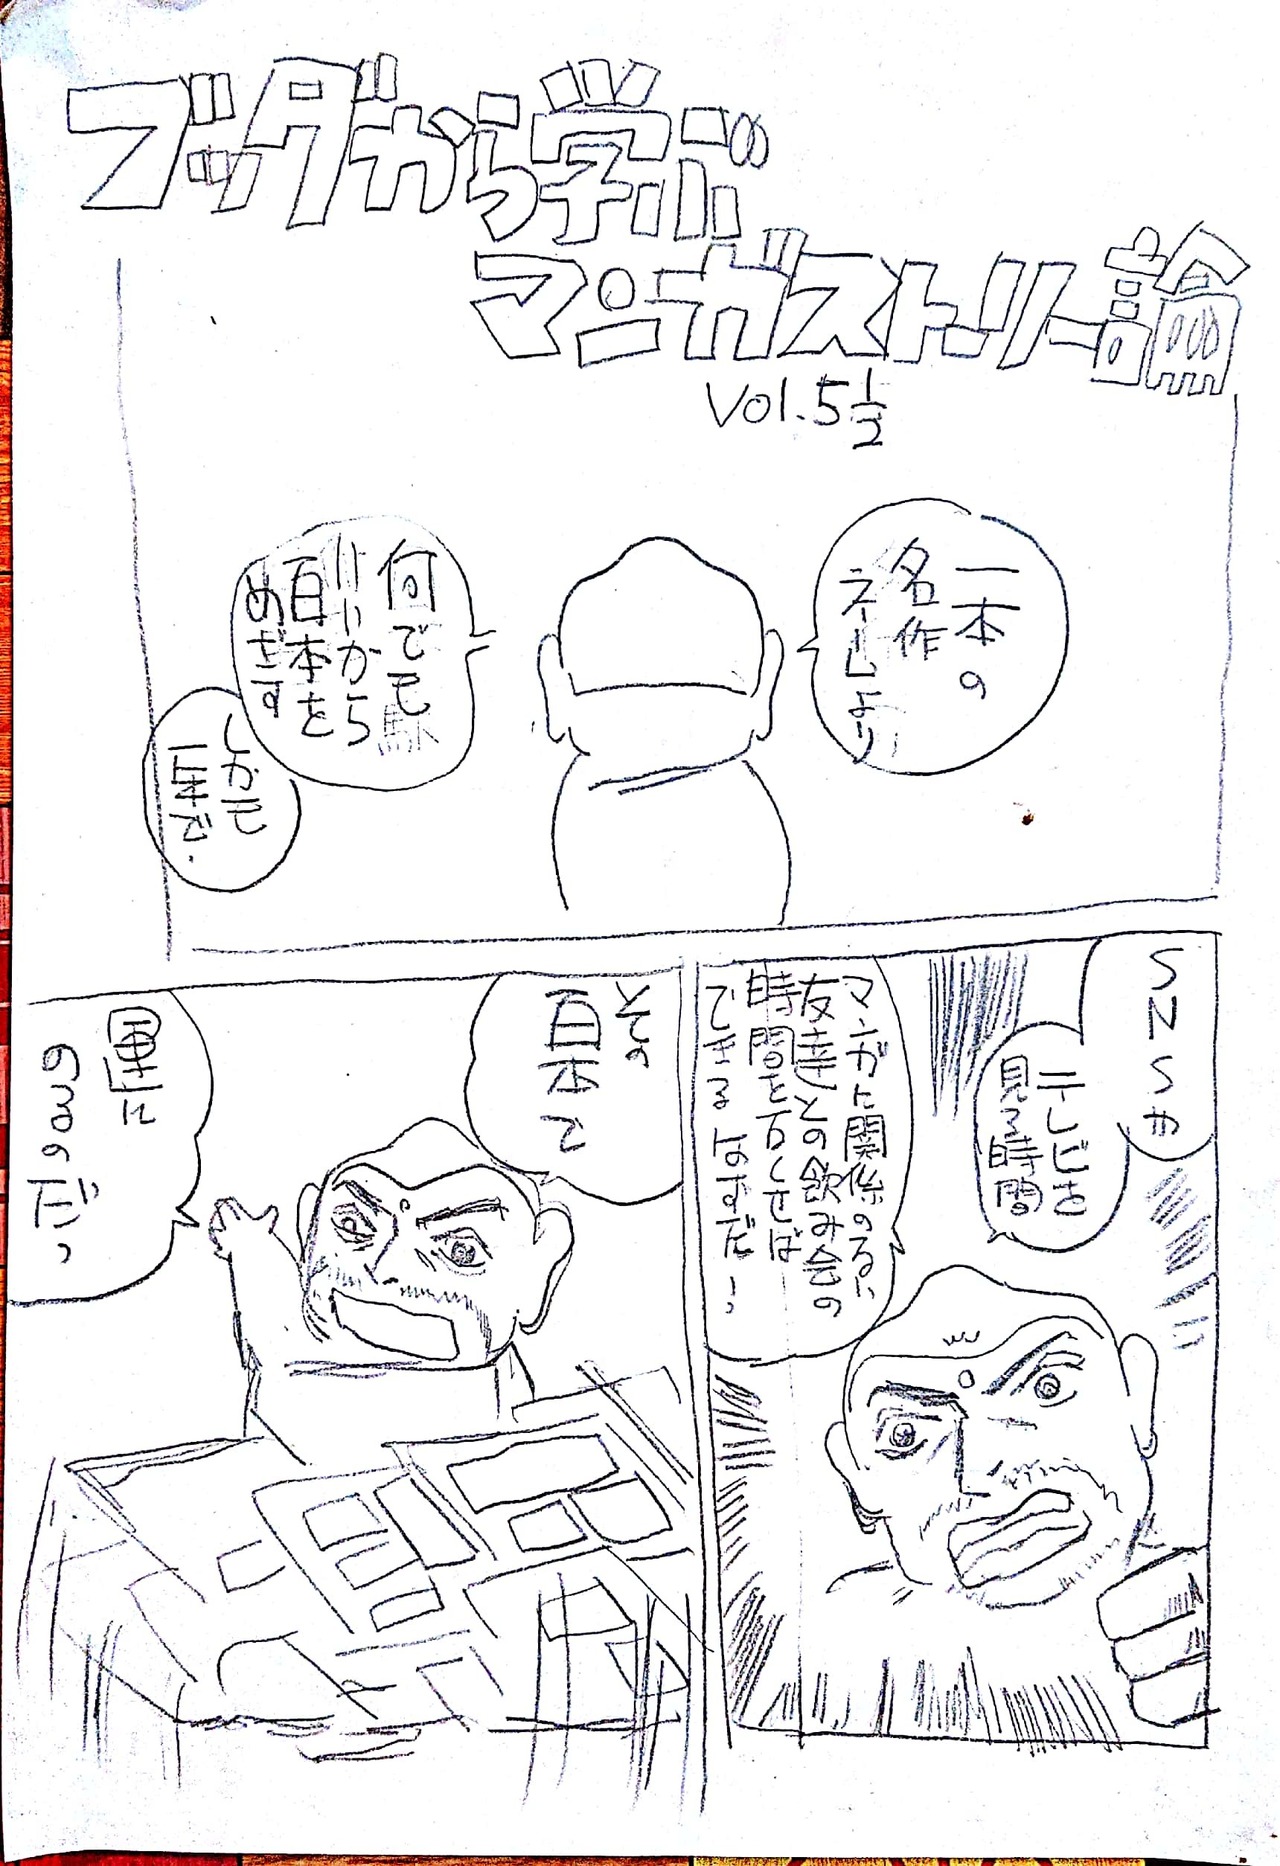 ブッダから学ぶ
マンガストーリー論
Vol.5 1/2
一本の
名作
ネームより
何でも
いいから
百本を
めざす
しかも
一年だ.
SNSや
テレビを
見る時間
マンガに関係のない
友達との飲み会の
時間を
できるはずだ!
その
百本で
運に